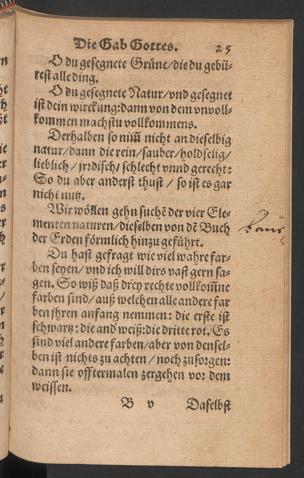 Die Gab Gottes. 25
O du gesegnete Grüne/die du gebü-
rest alle ding.
O du gesegnete Natur/vnd gesegnet
ist dein wirckung: dann von dem vnvoll-
kommen machstu vollkommens.
Derhalben so nim̄ nicht an dieselbig
natur/dann die rein/sauber/holdselig/
lieblich/jrdisch/schlecht vnnd gerecht:
So du aber anderst thust/so ist es gar
nicht nutz.
Wir wöllen gehn suchē der vier Ele-
menten naturen/dieselben von dē Buch
der Erden förmlich hinzu geführt.
Du hast gefragt wie viel wahre far-
ben seyen/vnd ich will dirs vast gern sa-
gen. So wiß daß drey rechte vollkom̄ne
farben sind/auß welchen alle andere far
ben jhren anfang nemmen: die erste ist
schwartz: die and weiß: die dritte rot. Es
sind viel andere farben/aber von densel-
ben ist nichts zu achten/noch zu sorgen:
dann sie offtermalen zergehen vor dem
weissen.
B v Daselbst